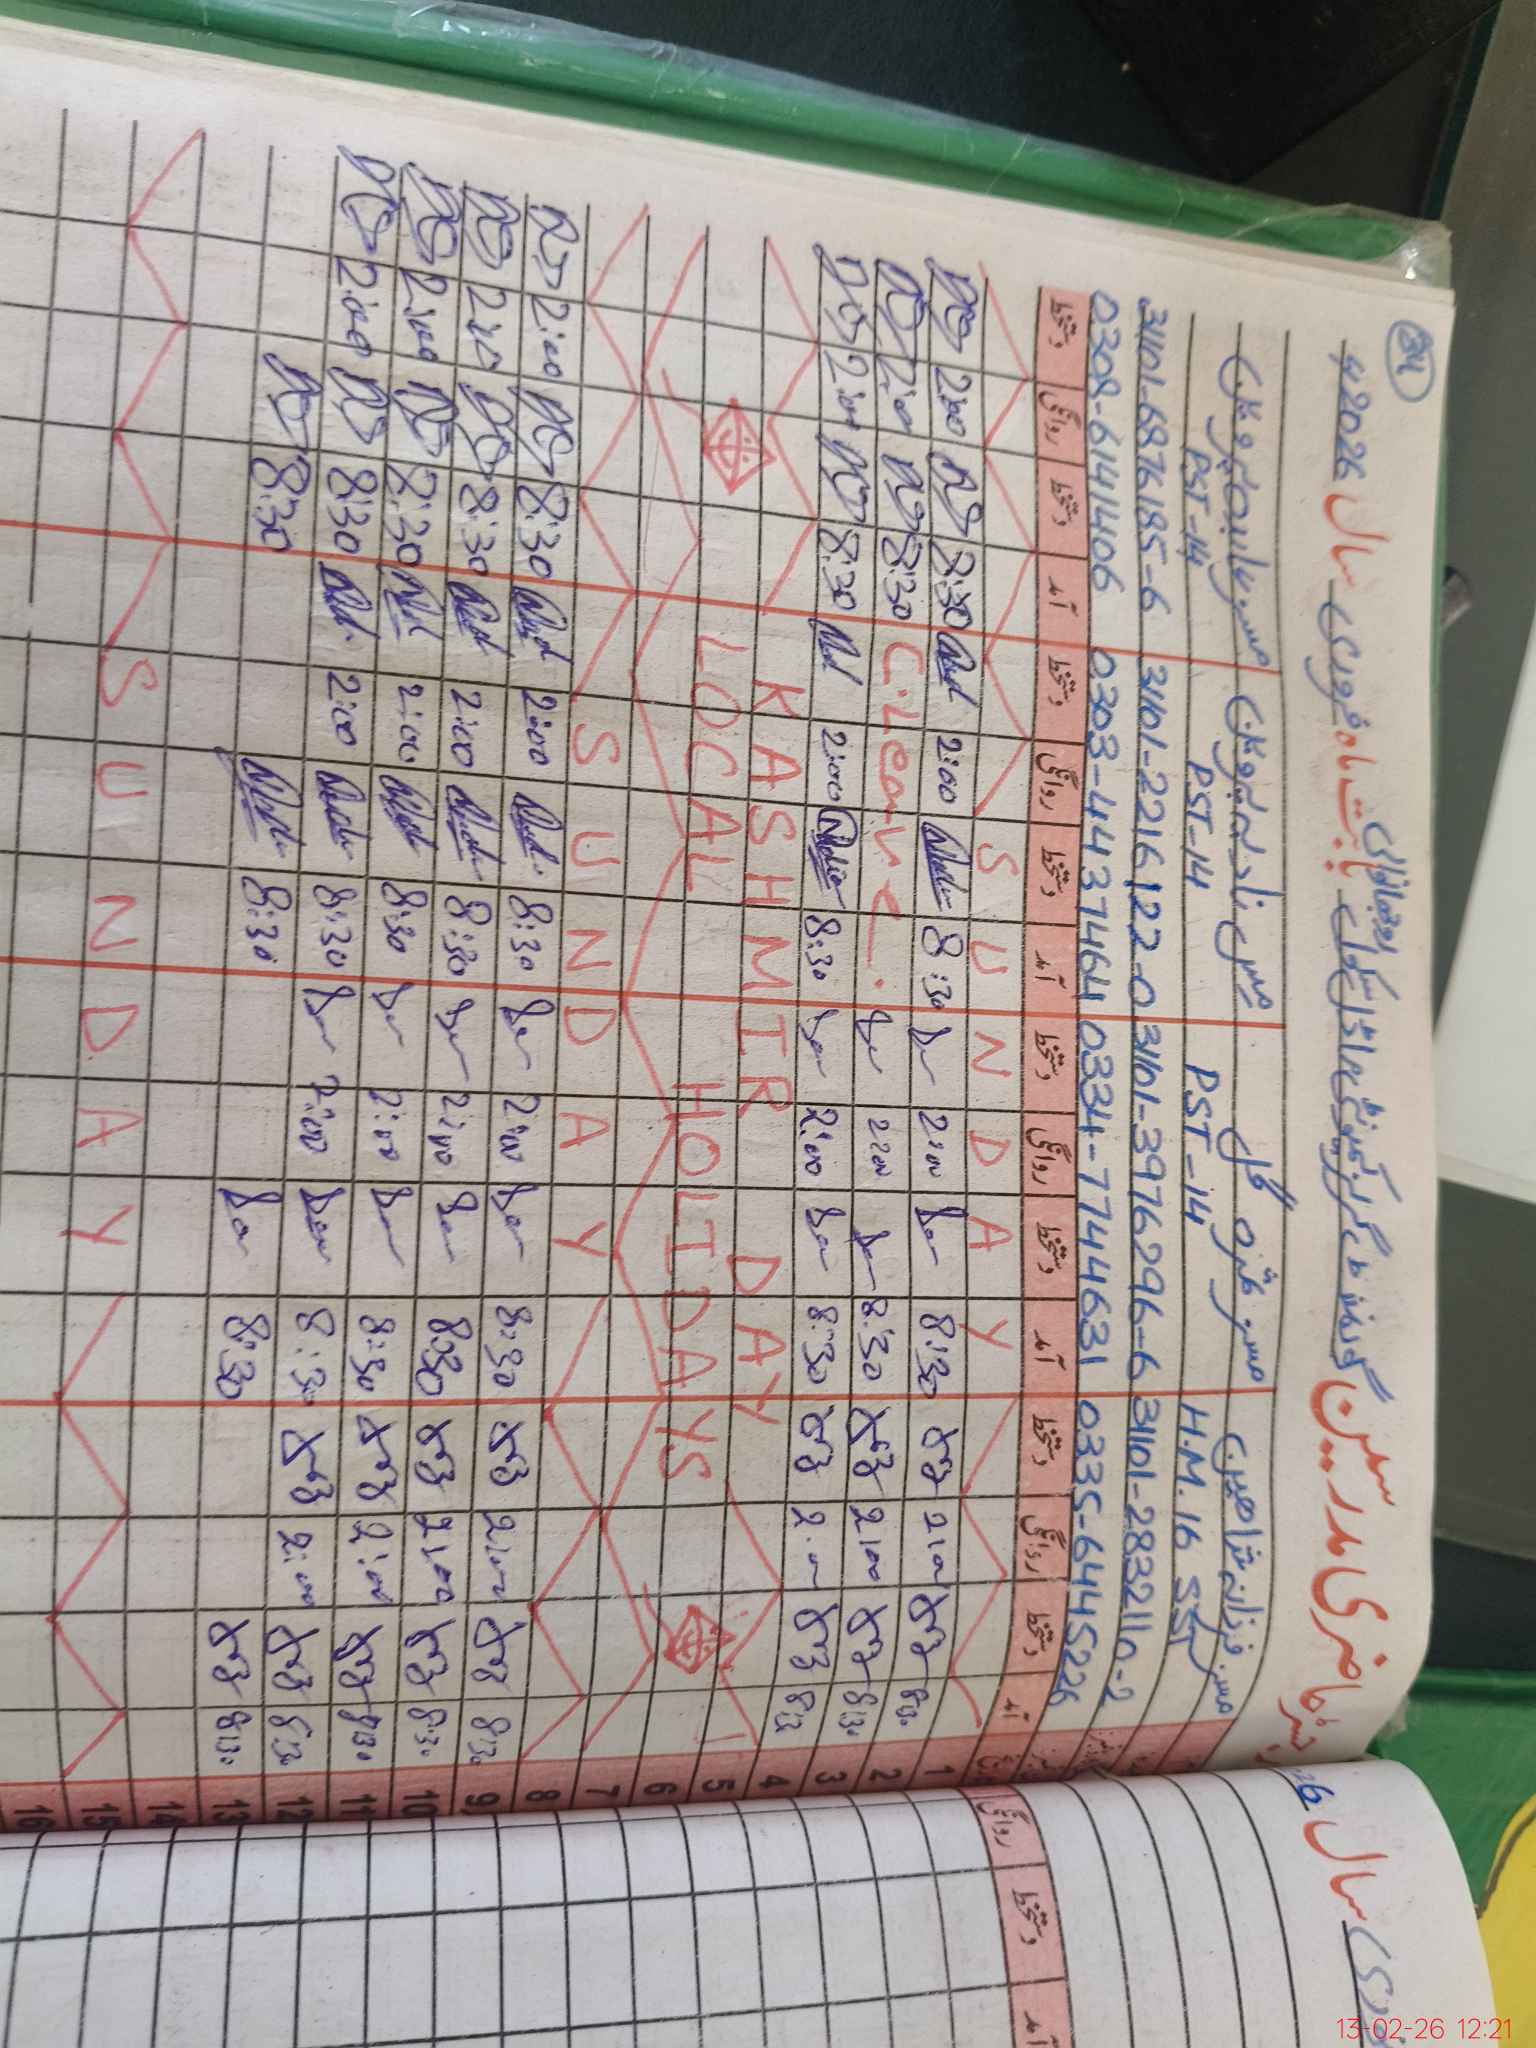 34
رجسٹر حاضری مدرسین گورنمنٹ گرلز کمیونٹی ماڈل سکول بابت ماہ فروری سال 2026ء
مسز فرزانہ شاھین مسز عشرہ گل مس نادیہ پروین مسز عابدہ پروین
H.M. 16 SST PST-14 PST-14 PST-14
31101-2832110-2 31101-3976296-6 31101-2216122-0 31101-6876185-6
0335-6445226 0334-7744631 0303-4437464 0308-6141406
آمد دستخط روانگی دستخط آمد دستخط روانگی دستخط آمد دستخط روانگی دستخط آمد دستخط روانگی دستخط
1 SUNDAY
2 8:30 2:00 8:30 2:00 8:30 2:00 8:30 2:00
3 8:30 2:00 8:30 2:00 C.Leave. 8:30 2:00
4 8:30 2:00 8:30 2:00 8:30 2:00 8:30 2:00
5 KASHMIR DAY
6 LOCAL HOLIDAYS
7
8 SUNDAY
9 8:30 2:00 8:30 2:00 8:30 2:00 8:30 2:00
10 8:30 2:00 8:30 2:00 8:30 2:00 8:30 2:00
11 8:30 2:00 8:30 2:00 8:30 2:00 8:30 2:00
12 8:30 2:00 8:30 2:00 8:30 2:00 8:30 2:00
13 8:30 8:30 8:30 8:30
14
15 SUNDAY
16
سال
روانگی دستخط آمد
13-02-26 12:21